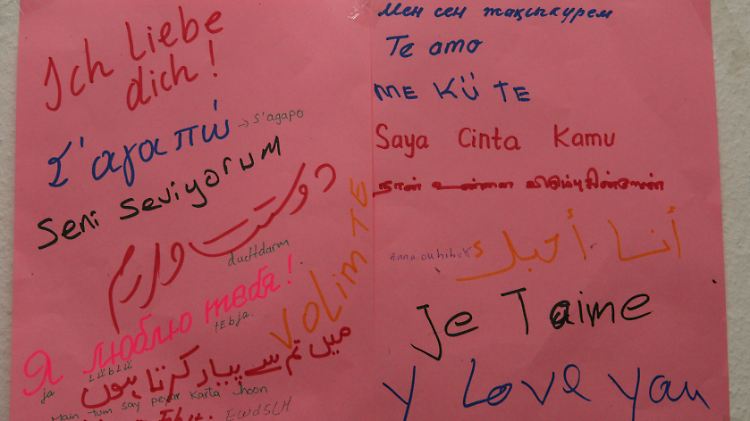 Ich liebe
dich!
Σ'αγαπώ → s'agapo
Seni Seviyorum
دوستت دارم
duchtdarm
Я люблю тебя!
ja LUBLU TEbja.
VOLIM TE
میں تم سے پیار کرتا ہوں
Main tum say peyar Karta hoon
Мен сен жақсыкурем
Te amo
ME KÜ TE
Saya Cinta Kamu
நான் உன்னை விரும்புகின்றேன்
أنا أحبك
Je T'aime
y Love you